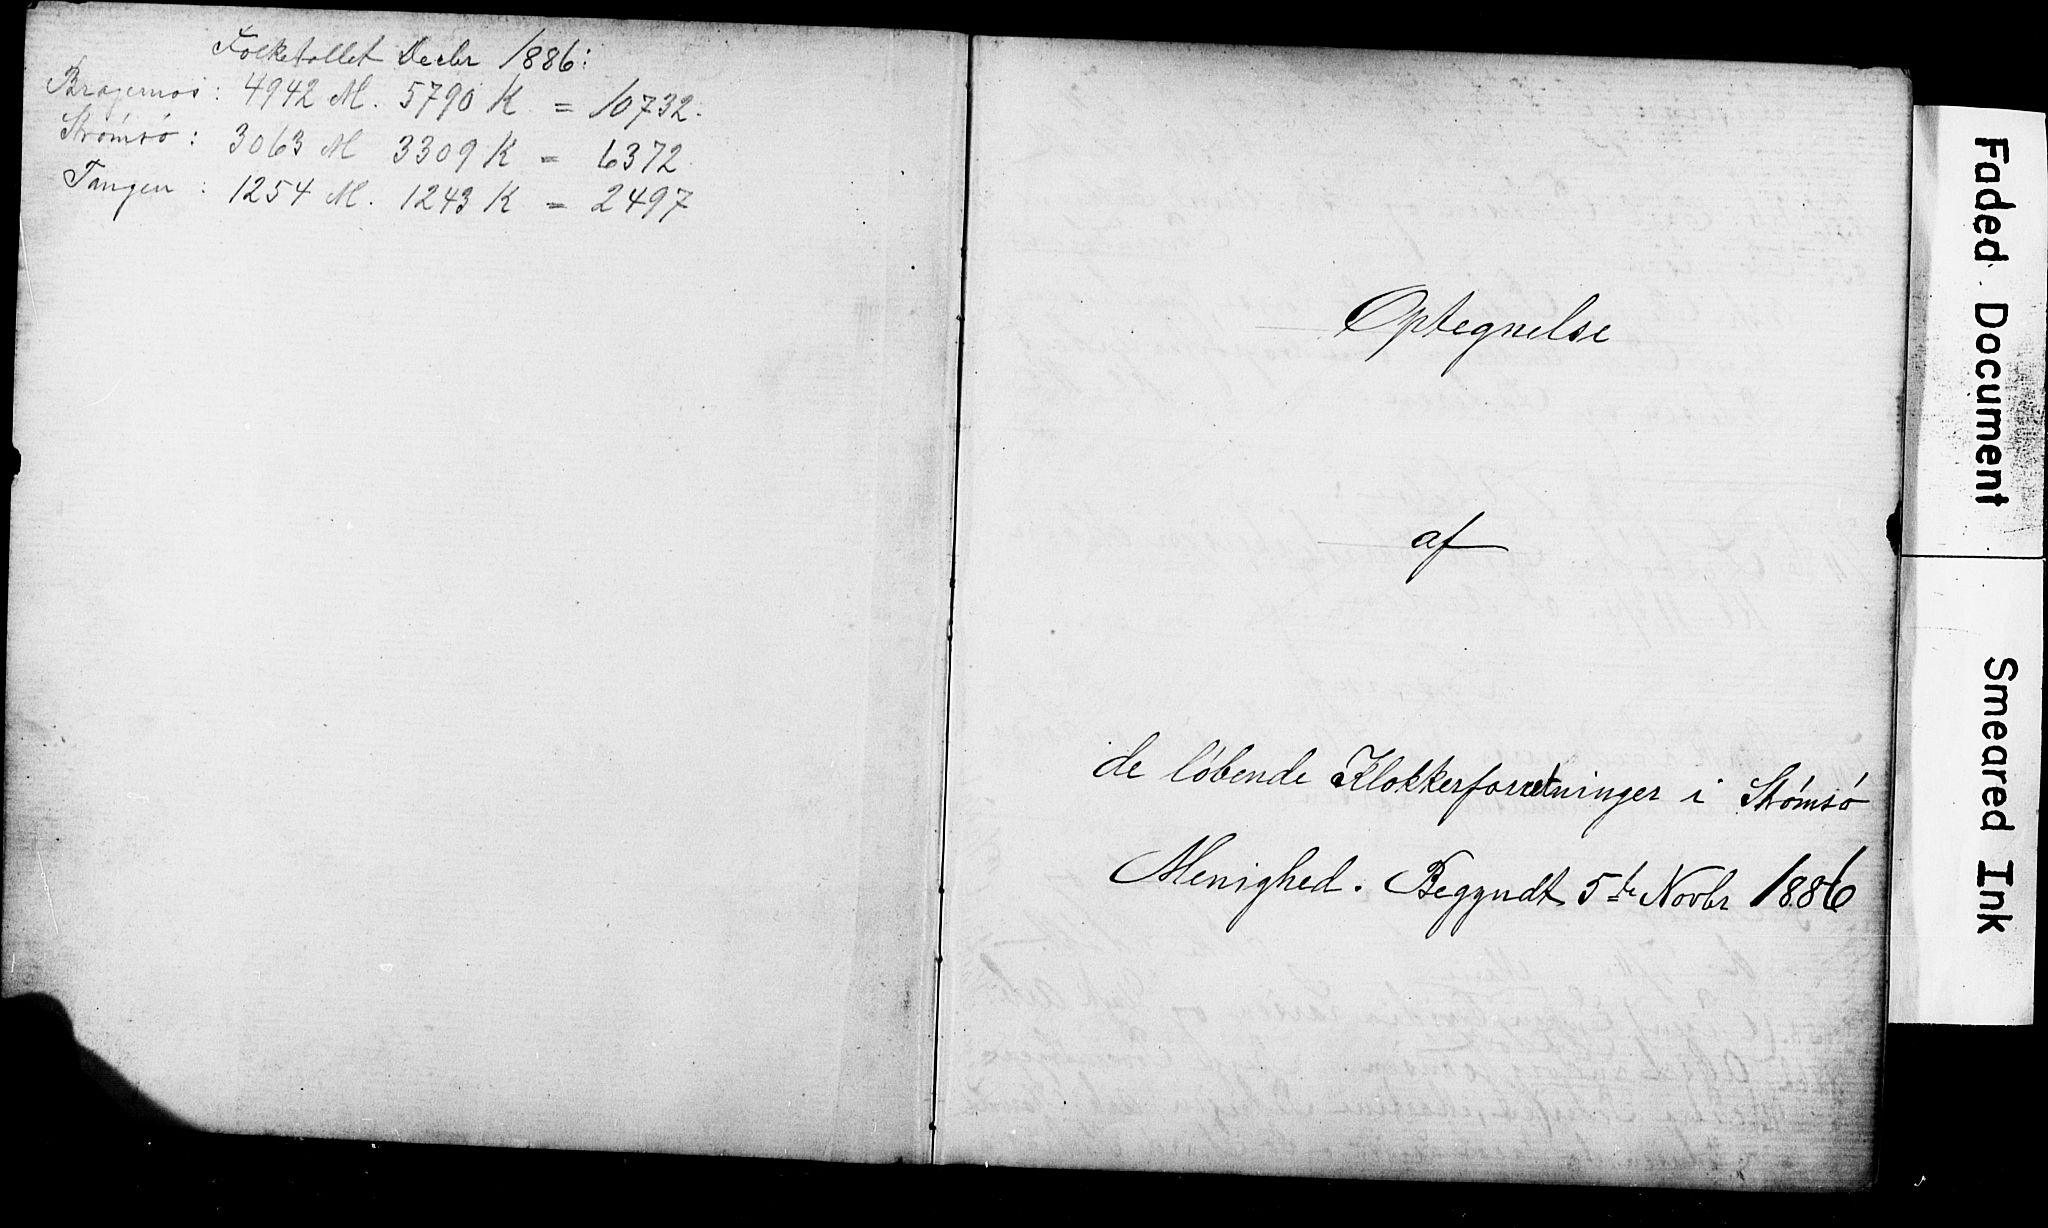 Folketallet Decbr 1886:
Bragernæs: 4942 M. 5790 K. = 10732.
Strømsø: 3063 M 3309 K = 6372
Tangen: 1254 M. 1243 K = 2497
Optegnelse
af
de løbende Klokkerforretninger i Strømsø
Menighed. Begyndt 5te Novbr 1886
Faded Document
Smeared Ink